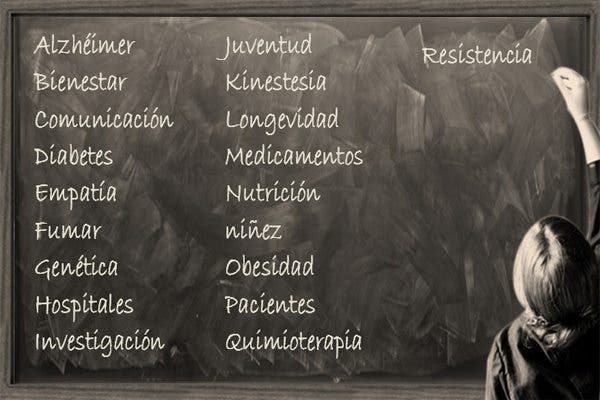 Alzhéimer
Bienestar
Comunicación
Diabetes
Empatía
Fumar
Genética
Hospitales
Investigación
Juventud
Kinestesia
Longevidad
Medicamentos
Nutrición
niñez
Obesidad
Pacientes
Quimioterapia
Resistencia